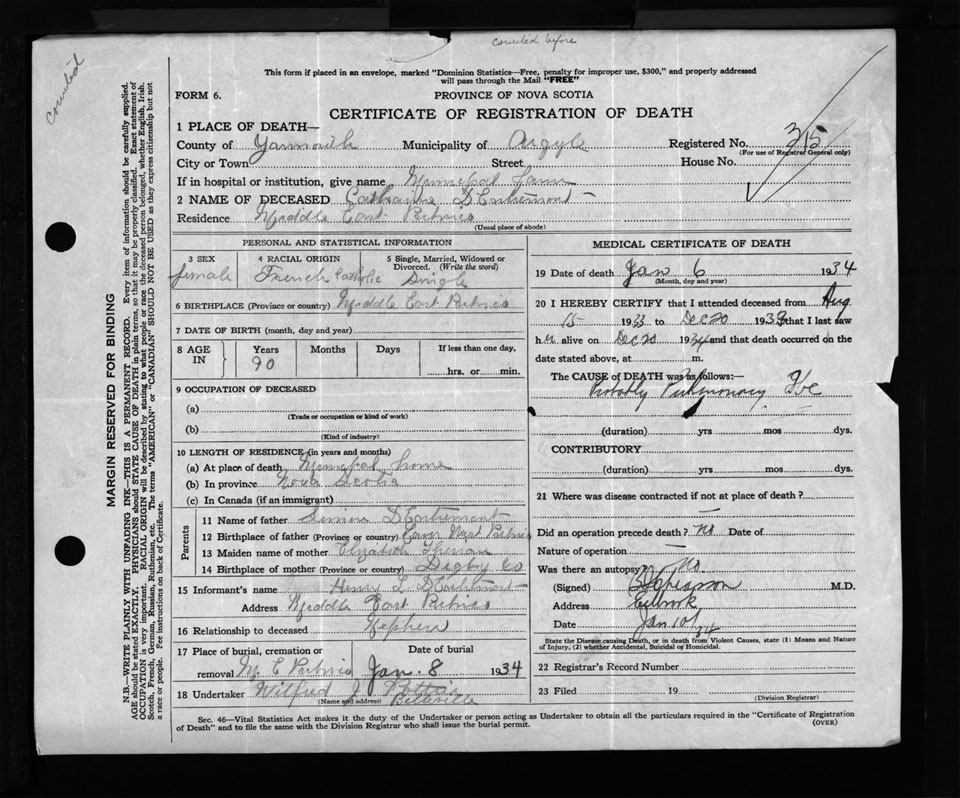 counted before
counted
This form if placed in an envelope, marked "Dominion Statistics—Free, penalty for improper use, $300," and properly addressed
will pass through the Mail "FREE"
FORM 6.
PROVINCE OF NOVA SCOTIA
CERTIFICATE OF REGISTRATION OF DEATH
1 PLACE OF DEATH—
County of Yarmouth Municipality of Argyle Registered No. 315
(For use of Registrar General only)
City or Town Street House No.
If in hospital or institution, give name Municipal
2 NAME OF DECEASED Catharine D'Entremont
Residence Middle East Pubnico
(Usual place of abode)
PERSONAL AND STATISTICAL INFORMATION
3 SEX 4 RACIAL ORIGIN 5 Single, Married, Widowed or Divorced. (Write the word)
female French Catholic Single
6 BIRTHPLACE (Province or country) Middle East Pubnico
7 DATE OF BIRTH (month, day and year)
8 AGE IN Years Months Days If less than one day,
90 hrs. or min.
9 OCCUPATION OF DECEASED
(a)
(Trade or occupation or kind of work)
(b)
(Kind of industry)
10 LENGTH OF RESIDENCE (in years and months)
(a) At place of death Municipal home
(b) In province Nova Scotia
(c) In Canada (if an immigrant)
Parents
11 Name of father Simon D'Entremont
12 Birthplace of father (Province or country) Lower West Pubnico
13 Maiden name of mother Elizabeth
14 Birthplace of mother (Province or country) Digby Co
15 Informant's name Henry L D'Entremont
Address Middle East Pubnico
16 Relationship to deceased Nephew
17 Place of burial, cremation or removal Date of burial
M E Pubnico Jan. 8 1934
18 Undertaker Wilfred J Pottier
(Name and address) Belleville
MEDICAL CERTIFICATE OF DEATH
19 Date of death Jan 6 1934
(Month, day and year)
20 I HEREBY CERTIFY that I attended deceased from Aug
15 1933 to Dec 20 1933 that I last saw
h er alive on Dec 20 1934 and that death occurred on the
date stated above, at m.
The CAUSE of DEATH was as follows:—
Probably Pulmonary Tbc
(duration) yrs mos dys.
CONTRIBUTORY
(duration) yrs mos dys.
21 Where was disease contracted if not at place of death?
Did an operation precede death? No Date of
Nature of operation —
Was there an autopsy? No
(Signed) M.D.
Address Eelbrook
Date Jan 10/34
State the Disease causing Death, or in death from Violent Causes, state (1) Means and Nature
of Injury, (2) whether Accidental, Suicidal or Homicidal.
22 Registrar's Record Number
23 Filed 19
(Division Registrar)
Sec. 46—Vital Statistics Act makes it the duty of the Undertaker or person acting as Undertaker to obtain all the particulars required in the "Certificate of Registration
of Death" and to file the same with the Division Registrar who shall issue the burial permit.
(OVER)
MARGIN RESERVED FOR BINDING
N.B.—WRITE PLAINLY WITH UNFADING INK—THIS IS A PERMANENT RECORD. Every item of information should be carefully supplied.
AGE should be stated EXACTLY. PHYSICIANS should STATE CAUSE OF DEATH in plain terms, so that it may be properly classified. Exact statement of
OCCUPATION is very important. RACIAL ORIGIN will be described by stating to what people or race the deceased person belonged, whether English, Irish,
Scotch, French, German, Russian, Ruthenian, etc. The terms "AMERICAN" or "CANADIAN" SHOULD NOT BE USED as they express citizenship but not
a race or people. See instructions on back of Certificate.